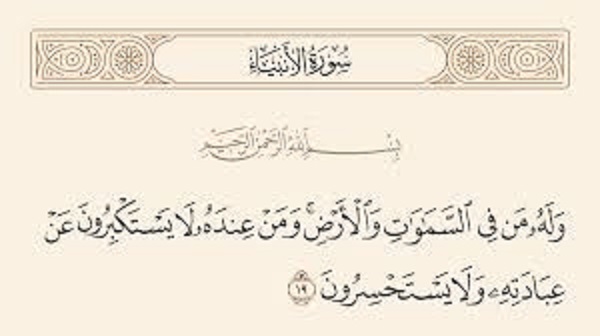 سُورَةُ الأَنبِيَاءِ
بِسْمِ اللَّهِ الرَّحْمَٰنِ الرَّحِيمِ
وَلَهُۥ مَن فِي ٱلسَّمَٰوَٰتِ وَٱلْأَرْضِۚ وَمَنْ عِندَهُۥ لَا يَسْتَكْبِرُونَ عَنْ
عِبَادَتِهِۦ وَلَا يَسْتَحْسِرُونَ ١٩